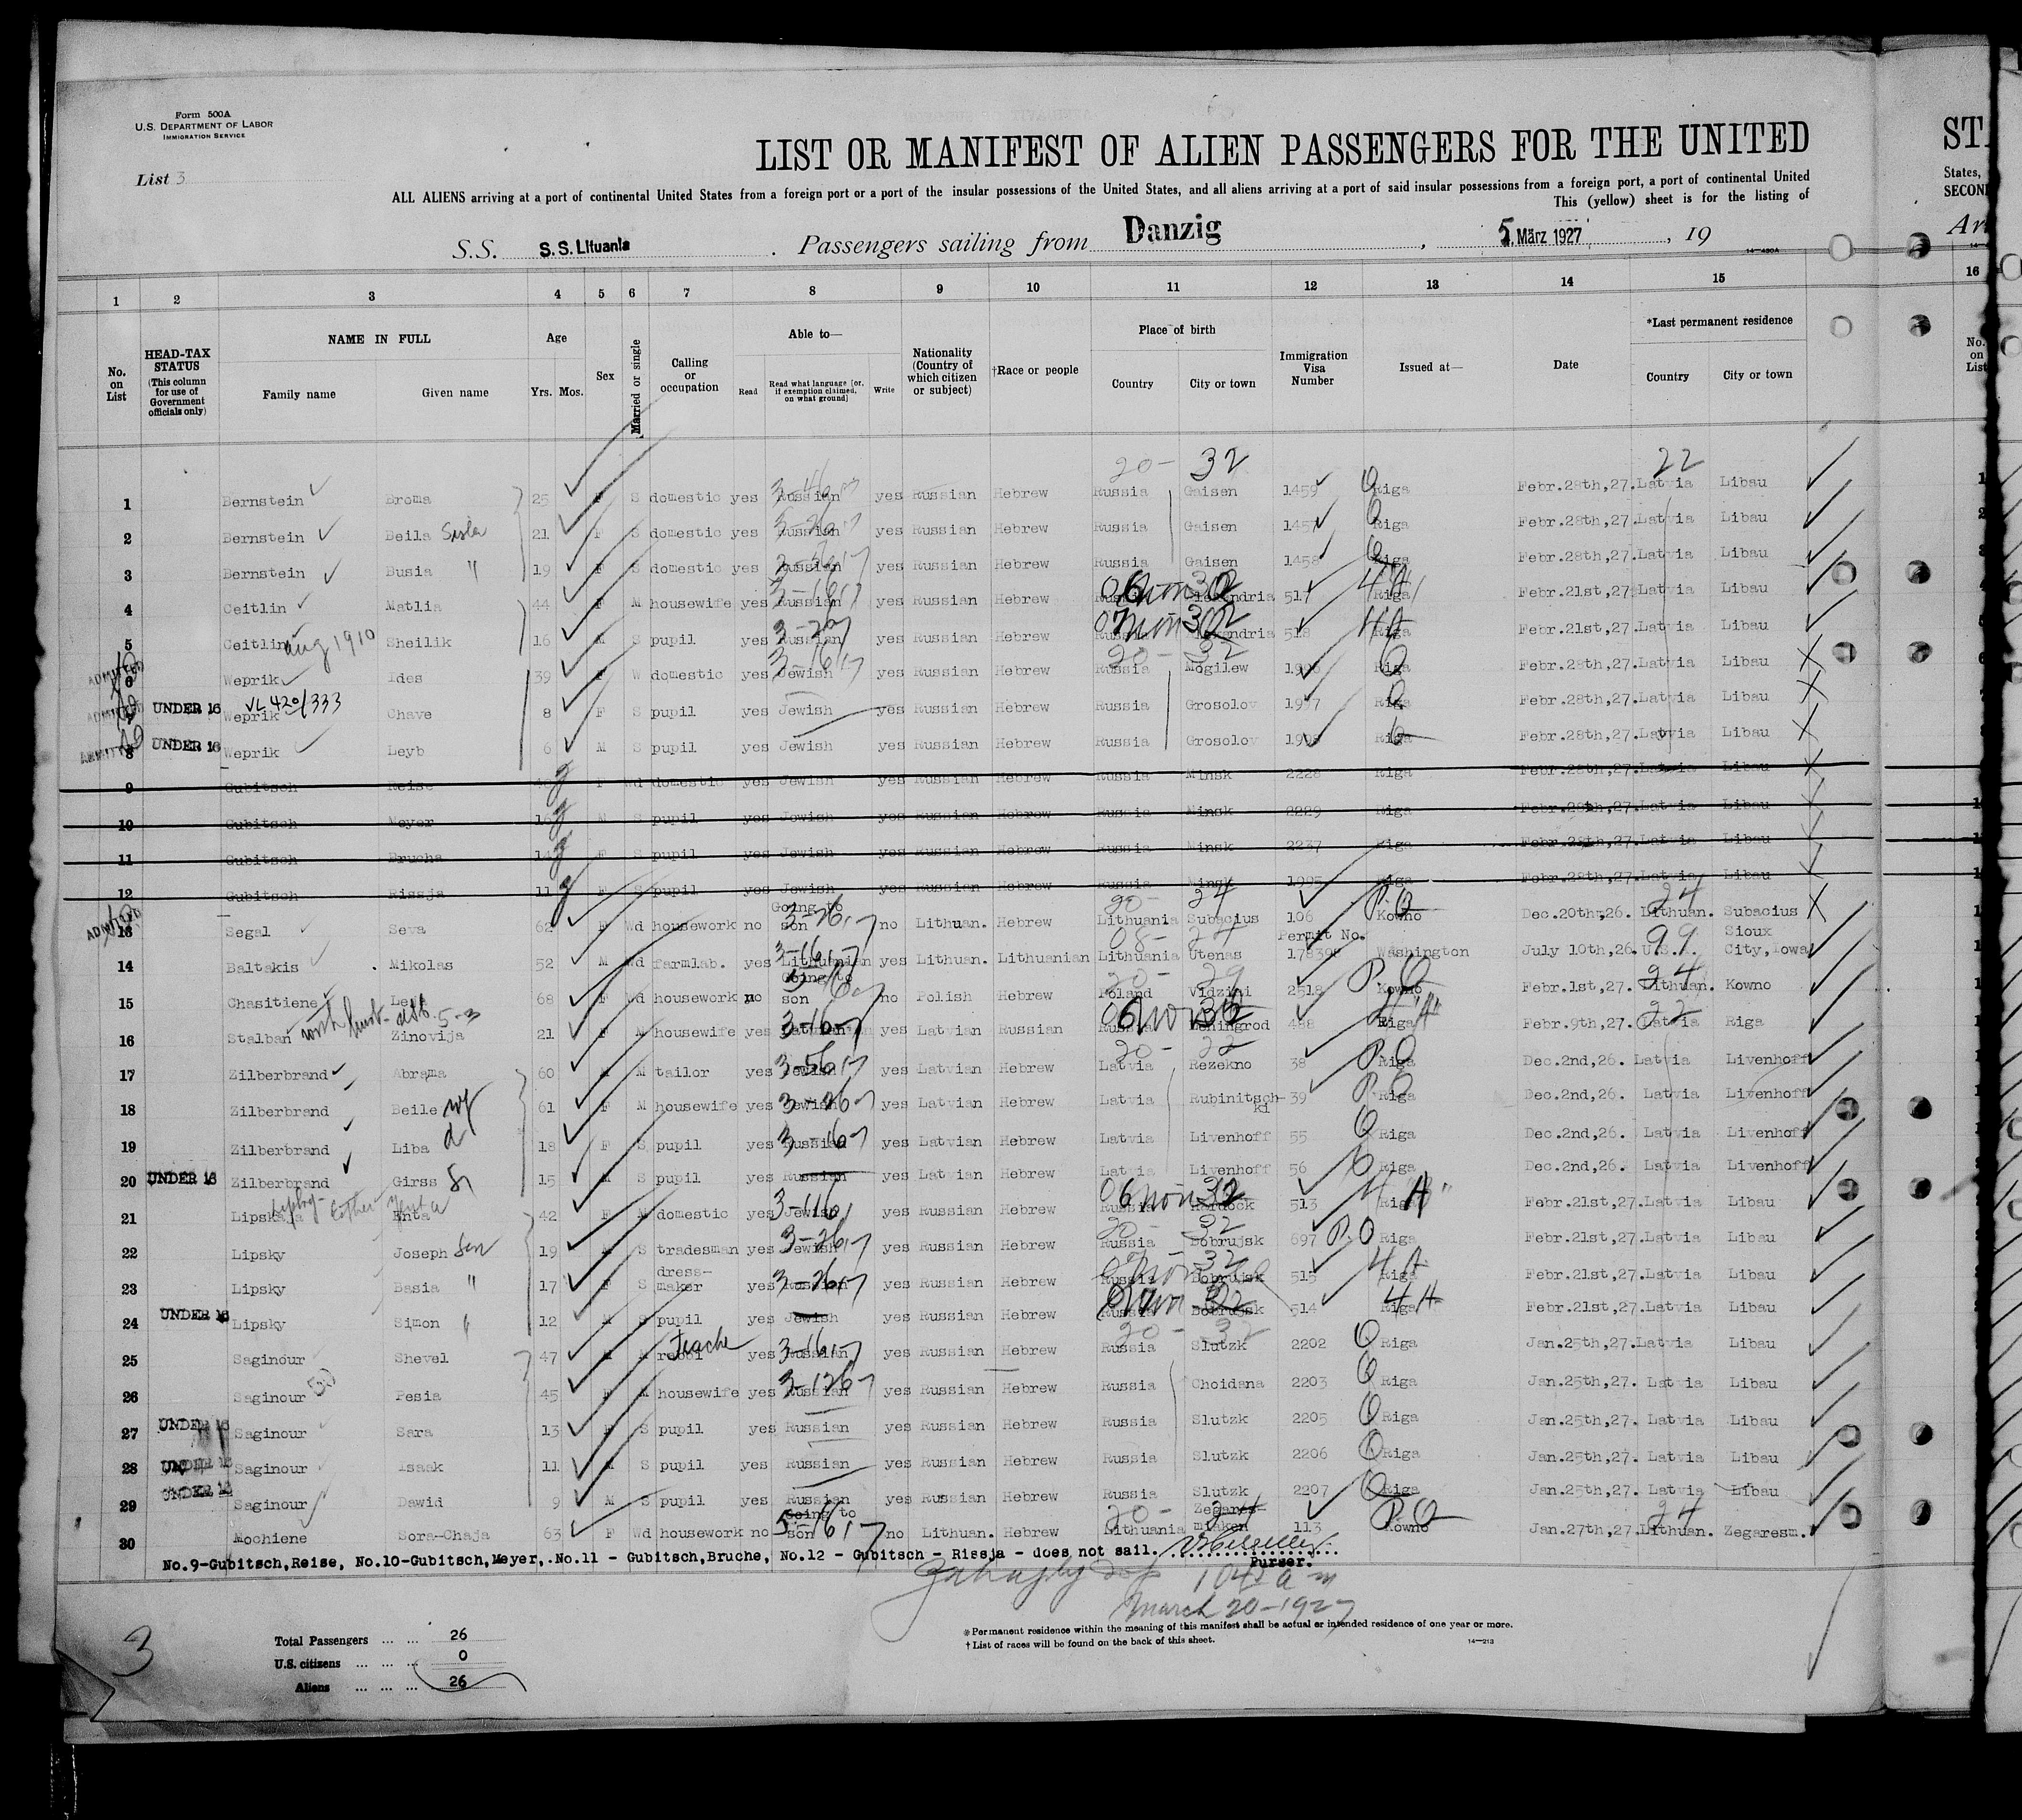 Form 500A
U.S. DEPARTMENT OF LABOR
IMMIGRATION SERVICE
List 3
LIST OR MANIFEST OF ALIEN PASSENGERS FOR THE UNITED
ALL ALIENS arriving at a port of continental United States from a foreign port or a port of the insular possessions of the United States, and all aliens arriving at a port of said insular possessions from a foreign port, a port of continental United
This (yellow) sheet is for the listing of
S.S. S.S. Lituania. Passengers sailing from Danzig, 5. März 1927, 19
14—430A
1 2 3 4 5 6 7 8 9 10 11 12 13 14 15
No. on List
HEAD-TAX STATUS (This column for use of Government officials only)
NAME IN FULL
Family name Given name
Age Yrs. Mos.
Sex
Married or single
Calling or occupation
Able to—
Read Read what language [or, if exemption claimed, on what ground] Write
Nationality (Country of which citizen or subject)
†Race or people
Place of birth
Country City or town
Immigration Visa Number
Issued at—
Date
*Last permanent residence
Country City or town
20- 32 22
1 Bernstein Broma 25 F S domestic yes Russian yes Russian Hebrew Russia Gaisen 1459 Riga Febr.28th,27. Latvia Libau
2 Bernstein Beila Sister 21 F S domestic yes Russian yes Russian Hebrew Russia Gaisen 1457 Riga Febr.28th,27. Latvia Libau
3 Bernstein Busia " 19 F S domestic yes Russian yes Russian Hebrew Russia Gaisen 1458 Riga Febr.28th,27. Latvia Libau
4 Ceitlin Matlia 44 F M housewife yes Russian yes Russian Hebrew Russia 517 Riga Febr.21st,27. Latvia Libau
5 Ceitlin Aug 1910 Sheilik 16 M S pupil yes Russian yes Russian Hebrew Russia 518 Riga Febr.21st,27. Latvia Libau
ADMITTED 6 Weprik Ides 39 F W domestic yes Jewish yes Russian Hebrew Russia Mogilew Riga Febr.28th,27. Latvia Libau
ADMITTED 7 UNDER 16 Weprik VL 420/333 Chave 8 F S pupil yes Jewish yes Russian Hebrew Russia Grosolov 1997 Riga Febr.28th,27. Latvia Libau
ADMITTED 8 UNDER 16 Weprik Leyb 6 M S pupil yes Jewish yes Russian Hebrew Russia Grosolov Riga Febr.28th,27. Latvia Libau
9 Gubitsch Reise F Wd domestic yes Jewish yes Russian Hebrew Russia Minsk 2228 Riga Febr.28th,27. Latvia Libau
10 Gubitsch Meyer 16 M S pupil yes Jewish yes Russian Hebrew Russia Minsk 2229 Riga Febr.28th,27. Latvia Libau
11 Gubitsch Brucha 14 F S pupil yes Jewish yes Russian Hebrew Russia Minsk 2237 Riga Febr.28th,27. Latvia Libau
12 Gubitsch Rissja 11 F S pupil yes Jewish yes Russian Hebrew Russia Minsk Riga Febr.28th,27. Latvia Libau
ADMITTED 13 Segal Seva 62 F Wd housework no Going to son no Lithuan. Hebrew Lithuania Subacius 106 Kowno Dec.20th,26. Lithuan. Subacius
14 Baltakis Mikolas 52 M Wd farmlab. yes Lithuanian yes Lithuan. Lithuanian Lithuania Utenas Permit No. Washington July 10th,26. U.S.A. Sioux City, Iowa
15 Chasitiene 68 F Wd housework no Going to son no Polish Hebrew Poland 2518 Kowno Febr.1st,27. Lithuan. Kowno
16 Stalban Zinovija 21 F M housewife yes yes Latvian Russian Russia Leningrod 488 Riga Febr.9th,27. Latvia Riga
17 Zilberbrand Abrama 60 M M tailor yes Jewish yes Latvian Hebrew Latvia Rezekno 38 Riga Dec.2nd,26. Latvia Livenhoff
18 Zilberbrand Beile wf 61 F M housewife yes Jewish yes Latvian Hebrew Latvia Rubinitschki 39 Riga Dec.2nd,26. Latvia Livenhoff
19 Zilberbrand Liba d 18 F S pupil yes Russian yes Latvian Hebrew Latvia Livenhoff 55 Riga Dec.2nd,26. Latvia Livenhoff
20 UNDER 16 Zilberbrand Girss 15 M S pupil yes Russian yes Latvian Hebrew Latvia Livenhoff 56 Riga Dec.2nd,26. Latvia Livenhoff
21 Lipskaja Enta 42 F M domestic yes Jewish yes Russian Hebrew Russia 513 Riga Febr.21st,27. Latvia Libau
22 Lipsky Joseph Son 19 M S tradesman yes Jewish yes Russian Hebrew Russia Bobrujsk 697 P.O Riga Febr.21st,27. Latvia Libau
23 Lipsky Basia " 17 F S dress-maker yes Russian yes Russian Hebrew Russia Bobrujsk 515 Riga Febr.21st,27. Latvia Libau
24 UNDER 16 Lipsky Simon " 12 M S pupil yes Jewish yes Russian Hebrew Russia Bobrujsk 514 Riga Febr.21st,27. Latvia Libau
25 Saginour Shevel 47 M M rabbi yes Russian yes Russian Hebrew Russia Slutzk 2202 Riga Jan.25th,27. Latvia Libau
26 Saginour Pesia 45 F M housewife yes Russian yes Russian Hebrew Russia Choidana 2203 Riga Jan.25th,27. Latvia Libau
27 UNDER 16 Saginour Sara 13 F S pupil yes Russian yes Russian Hebrew Russia Slutzk 2205 Riga Jan.25th,27. Latvia Libau
28 UNDER 16 Saginour Isaak 11 M S pupil yes Russian yes Russian Hebrew Russia Slutzk 2206 Riga Jan.25th,27. Latvia Libau
29 UNDER 16 Saginour Dawid 9 M S pupil yes Russian yes Russian Hebrew Russia Slutzk 2207 Riga Jan.25th,27. Latvia Libau
30 Mochiene Sora-Chaja 63 F Wd housework no Going to son no Lithuan. Hebrew Lithuania 113 Kowno Jan.27th,27. Lithuan. Zegaresm.
No.9-Gubitsch,Reise, No.10-Gubitsch,Meyer,.No.11 - Gubitsch,Bruche, No.12 - Gubitsch - Rissja - does not sail.
Purser.
1045 a m
March 20-1927
* Permanent residence within the meaning of this manifest shall be actual or intended residence of one year or more.
† List of races will be found on the back of this sheet.
14—213
3
Total Passengers ... ... 26
U.S. citizens ... ... ... 0
Aliens ... ... ... 26
ST
States,
SECON
Ar
16
No. on List